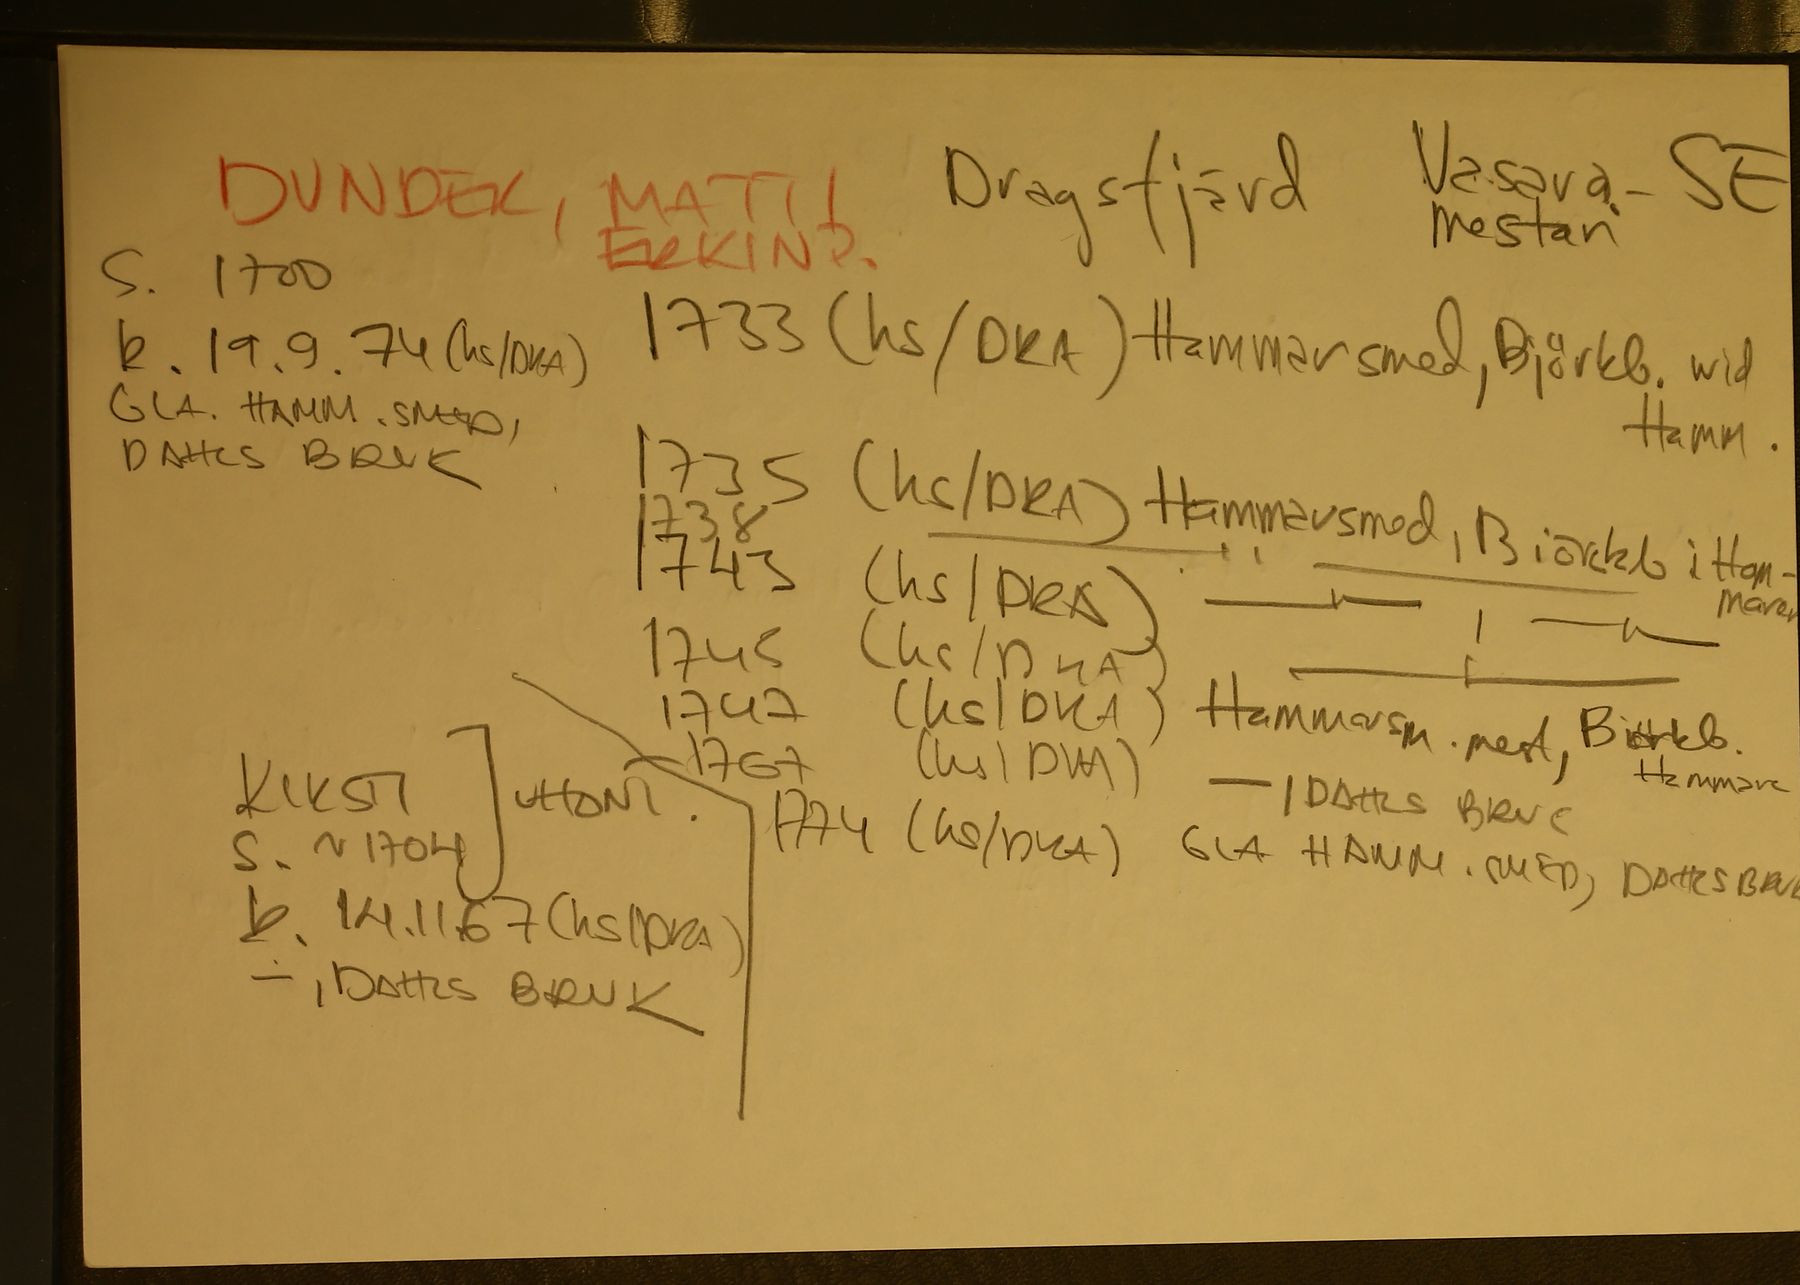 DUNDEK, MATTI ERKINP. Dragsfjärd Vasara-mestari SE
S. 1700
k. 19.9.74 (hs/DRA)
GLA. HAMM.SMED,
DAHLS BRUK
1733 (hs/DRA) Hammarsmed, Björkb. wid Hamm.
1735 (hs/DRA) Hammarsmed, Biörkb i Hammaren
1738 — " —
1743 (hs/DRA) — " — , — " —
1745 (hs/DRA) — " —
1747 (hs/DRA) Hammarsm.mest, Biörkb. Hammare
1767 (hs/DRA) — , DAHLS BRUK
1774 (hs/DRA) GLA HAMM.SMED, DAHLS BRUK
KIRSTI
S. ~1704
k. 14.11.67 (hs/DRA)
— , DAHLS BRUK